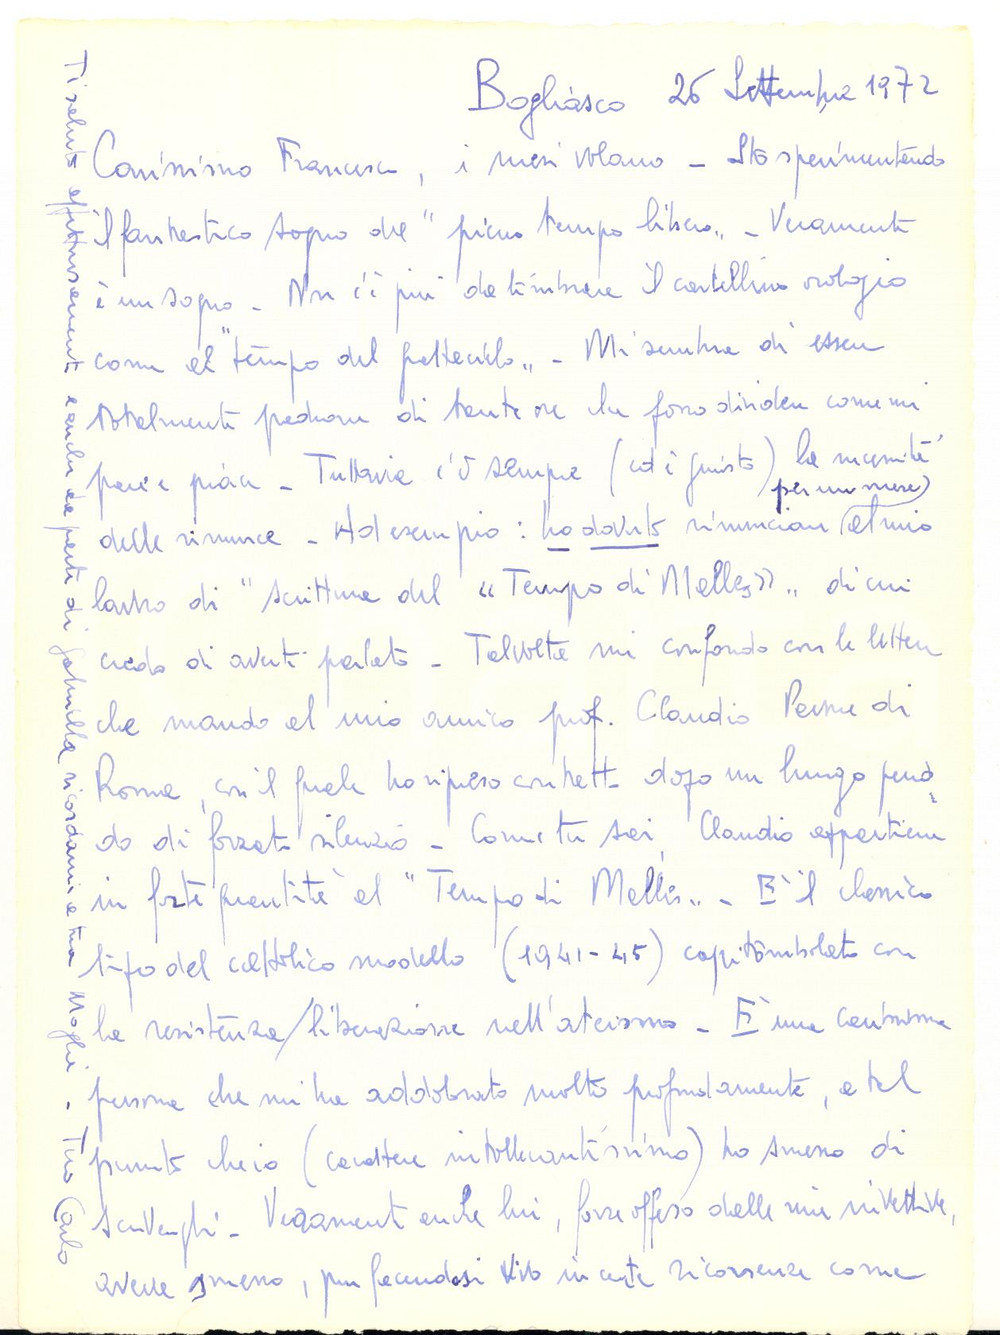 Bogliasco 26 Settembre 1972
Carissimo Francesco, i mesi volano - Sto sperimentando
il fantastico sogno del "pieno tempo libero„ - Veramente
è un sogno - Non c'è più da timbrare il cartellino orologio
come al "tempo del grattacielo„ - Mi sembra di essere
totalmente padrone di tante ore da forse dividere come mi
pare e piace - Tuttavia c'è sempre (ed è giusto) la necessità
delle rinunce - Ad esempio: ho dovuto rinunciare (per un mese) al mio
lavoro di "scrittura del «Tempo di Melles»„ di cui
credo di averti parlato - Talvolta mi confondo con le lettere
che mando al mio amico prof. Claudio di
Roma, con il quale ho ripreso contatto dopo un lungo perio-
do di forzato silenzio - Come tu sai, Claudio appartiene
in forte quantità al "Tempo di Melles„ - È il classico
tipo del cattolico modello (1941-45) capitombolato con
la resistenza/liberazione nell'ateismo - È una carissima
persona che mi ha addolorato molto profondamente, a tal
punto che io (carattere intollerantissimo) ho smesso di
scrivergli - Veramente anche lui, forse offeso dalle mie invettive,
aveva smesso, pur facendosi vivo in certe ricorrenze come
Ti saluto affettuosamente e anche da parte di ricordami a tua Moglie - Tuo Carlo